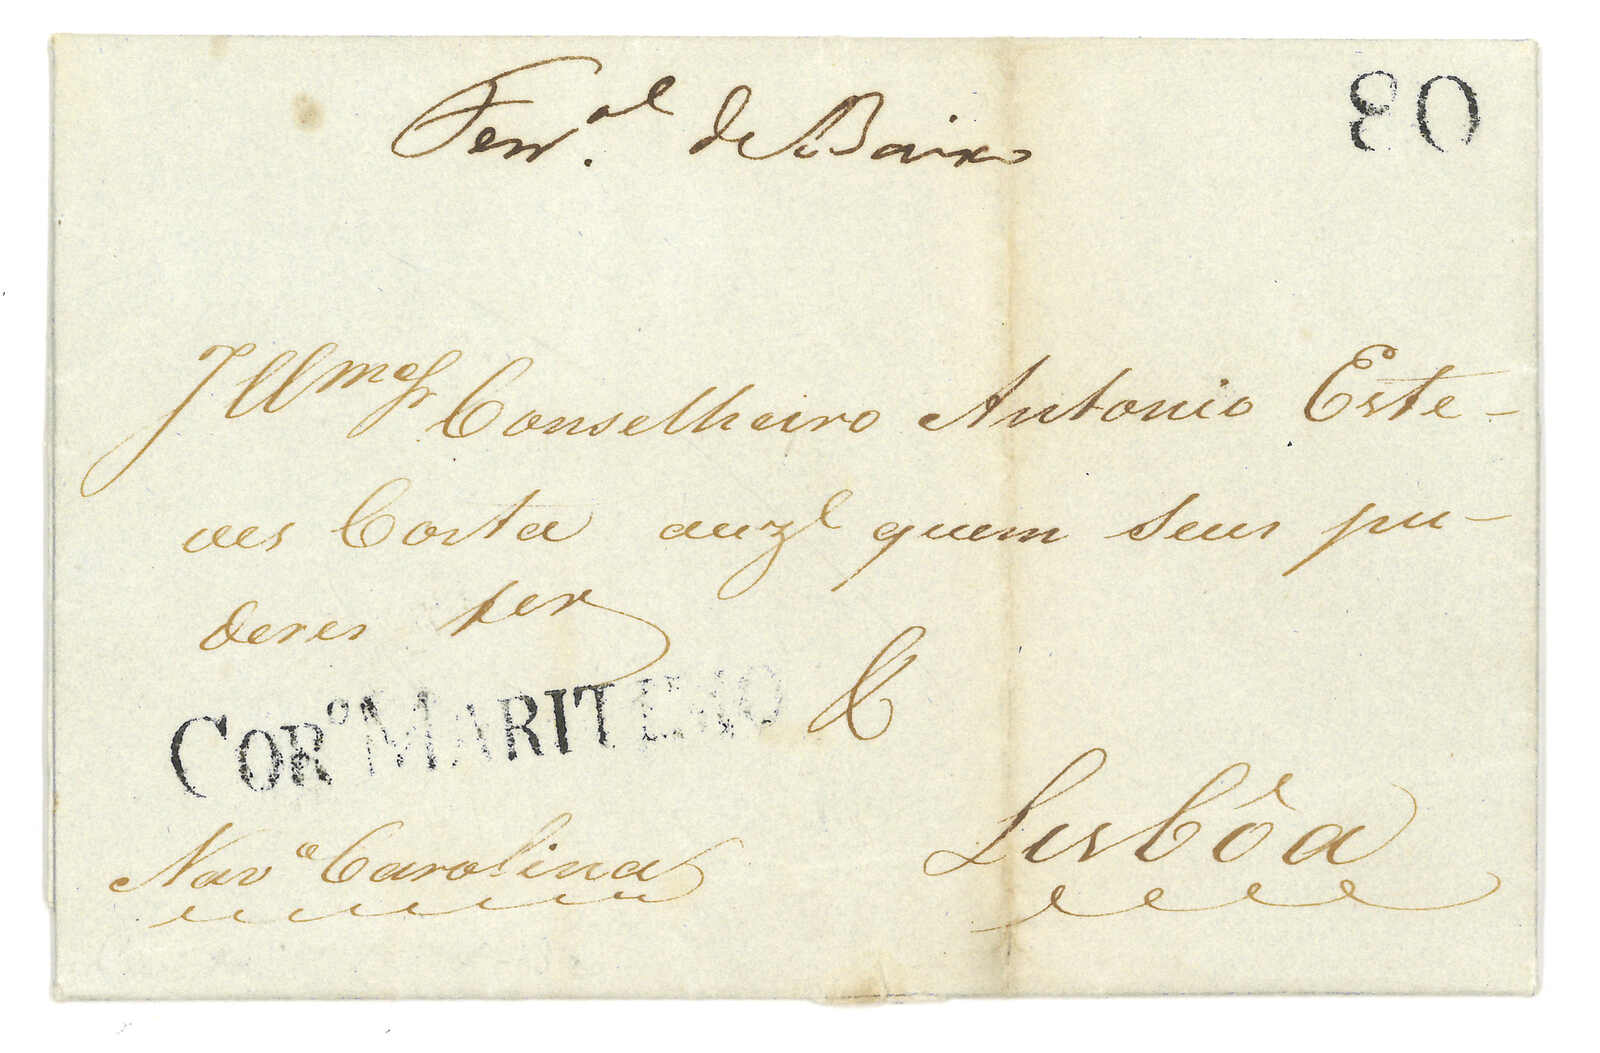 Ferr.al de Baixo
80
Illmo Sr Conselheiro Antonio Este-
ves Costa auzl quem seus pu-
deres ter
&
COR.o MARITIMO
Navo Carolina
Lisbôa